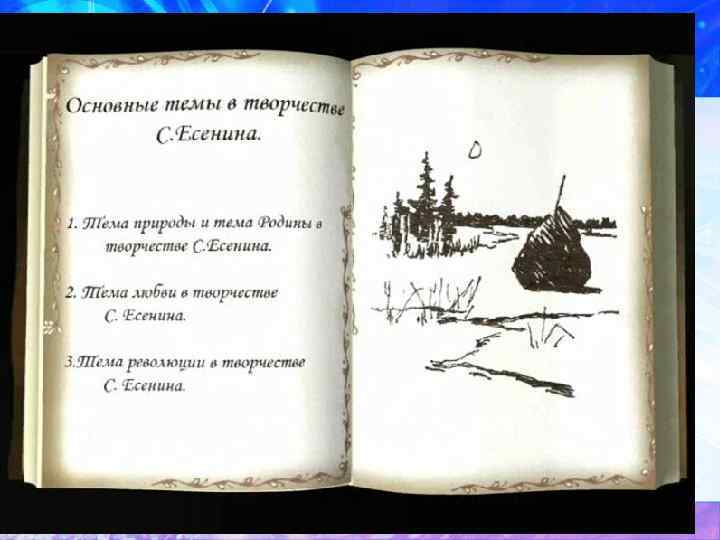 Основные темы в творчестве
С.Есенина.
1. Тема природы и тема Родины в
творчестве С.Есенина.
2. Тема любви в творчестве
С. Есенина.
3.Тема революции в творчестве
С. Есенина.